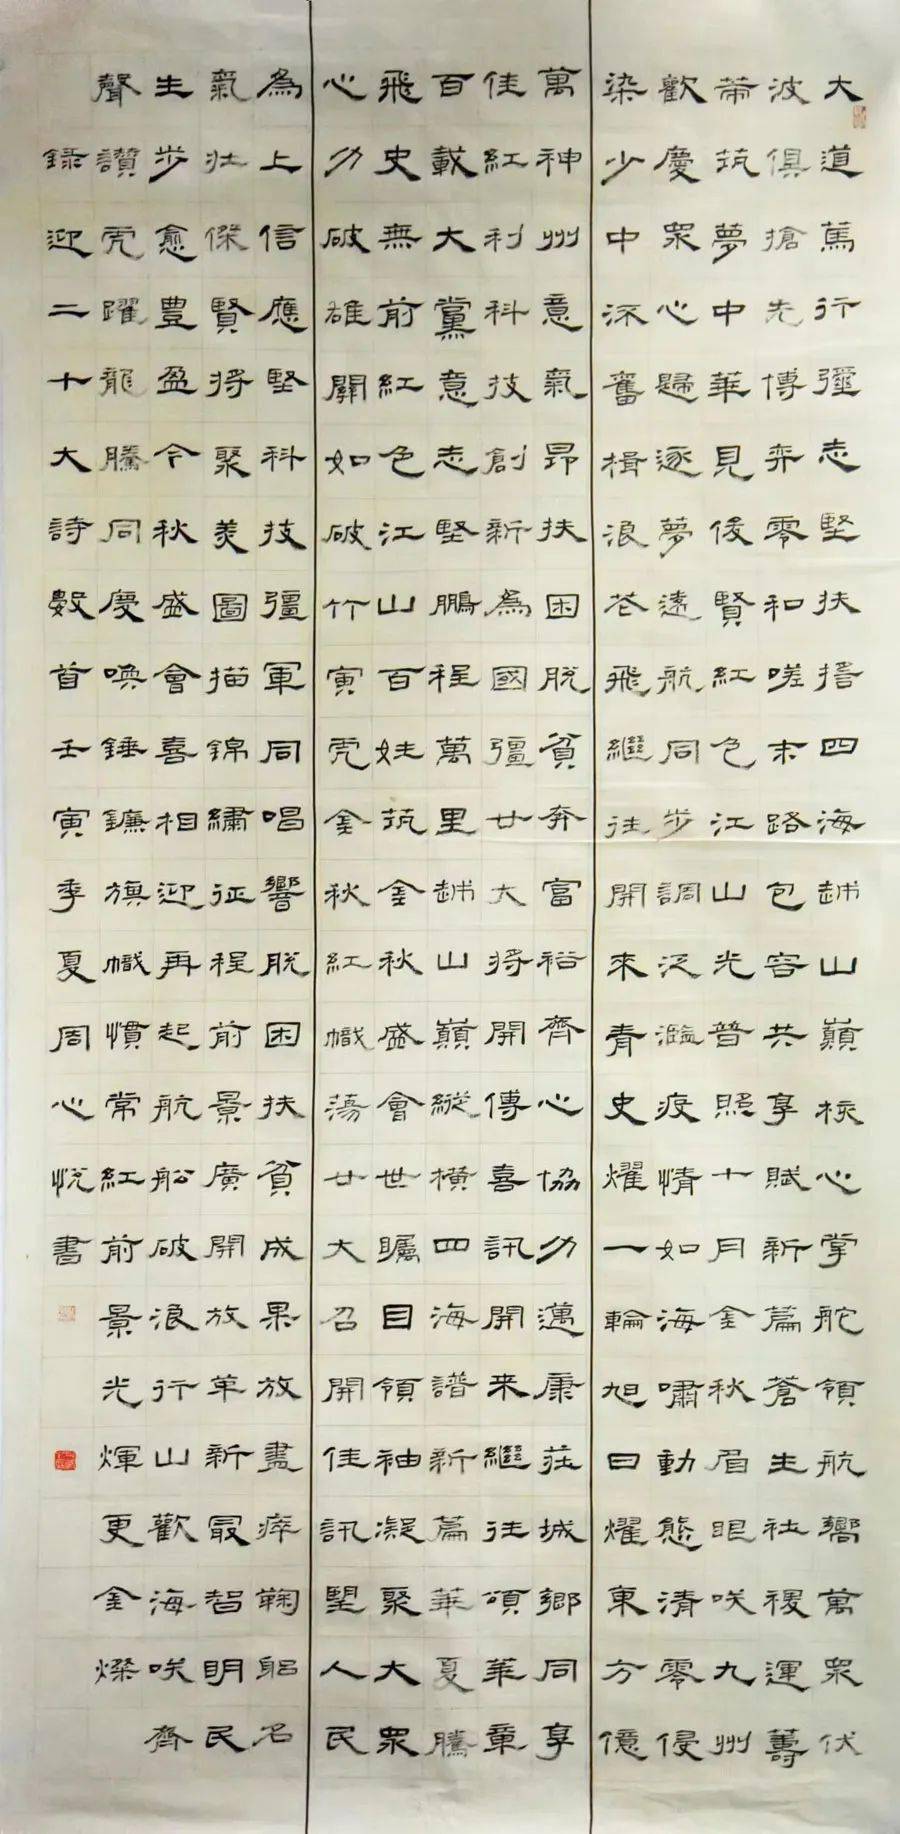 大道篤行彊志堅扶搭四海越山巔核心掌舵領航嚮萬眾伏
波俱搶先傳弈零和嗟末路包容共享賦新篇蒼生社稷運籌
筑夢中華見後賢紅色江山光普照十月金秋眉眼咲九州
歡慶眾心歸逐夢遠航同步調泛濫疫情如海嘯動態清零侵
染少中流奮楫浪花飛繼往開來青史燿一輪旭日燿東方億
萬神州意氣昂扶困脫貧奔富裕齊心協力邁康莊城鄉同享
佳紅利科技創新為國彊廿大將開傳喜訊開來繼往頌華章
百載大黨意志堅鵬程萬里越山巔縱橫四海譜新篇華夏騰
飛史無前紅色江山百姓筑金秋盛會世矚目領袖凝聚大眾
心力破雄關如破竹寅虎金秋紅幟蕩廿大召開佳訊人民
為上信應堅科技彊軍同唱響脫困扶貧成果放盡瘁鞠躬名
氣壯傑賢將聚美圖描錦繡征程前景廣開放革新最智明民
生步愈豐盈今秋盛會喜相迎再起航船破浪行山歡海咲齊
聲讚虎躍龍騰同慶喚錘鐮旗幟慣常紅前景光輝更金燦
錄迎二十大詩數首壬寅季夏周心悅書